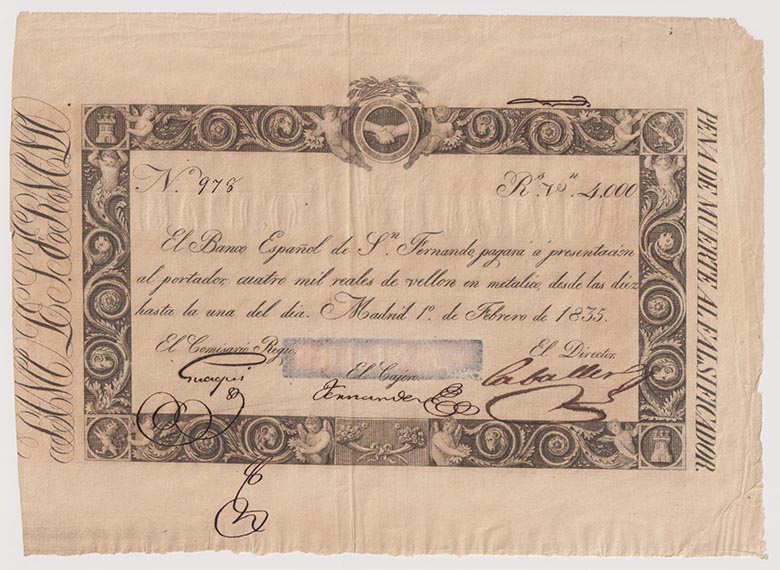 Nº 978
Rˢ. Vⁿ. 4,000
El Banco Español de Sⁿ. Fernando, pagará á presentacion
al portador, cuatro mil reales de vellon en metalico, desde las diez
hasta la una del dia. Madrid 1º. de Febrero de 1835.
El Comisario Regio
El Cajero.
El Director.
Fernandez
Caballero
PENA DE MUERTE AL FALSIFICADOR.